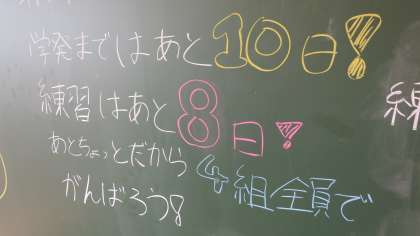 学発まではあと10日!
練習はあと8日!
あとちょっとだから
4組全員で
がんばろう!
練